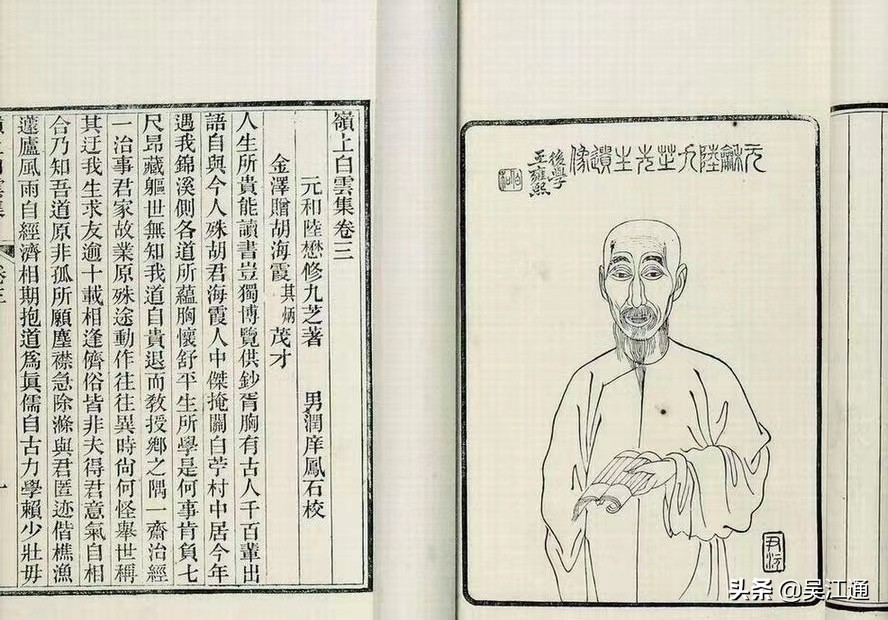 元龢陸九芝先生遺像
後學
王雍熙
嶺上白雲集卷三
元和陸懋修九芝著 男潤庠鳳石校
金澤贈胡海霞其炳茂才
人生所貴能讀書豈獨博覽供鈔胥胸有古人千百輩出
語自與今人殊胡君海霞人中傑掩關白苧村中居今年
遇我錦溪側各道所蘊胸懷舒平生所學是何事肯負七
尺昂藏軀世無知我道自貴退而教授鄉之隅一齋治經
一治事君家故業原殊途動作往往異時尙何怪舉世稱
其迂我生求友逾十載相逢儕俗皆非夫得君意氣自相
合乃知吾道原非孤所願塵襟急除滌與君匿迹偕樵漁
蘧廬風雨自經濟相期抱道爲眞儒自古力學賴少壯毋
嶺上白雲集 卷三 一
头条 @吴江通